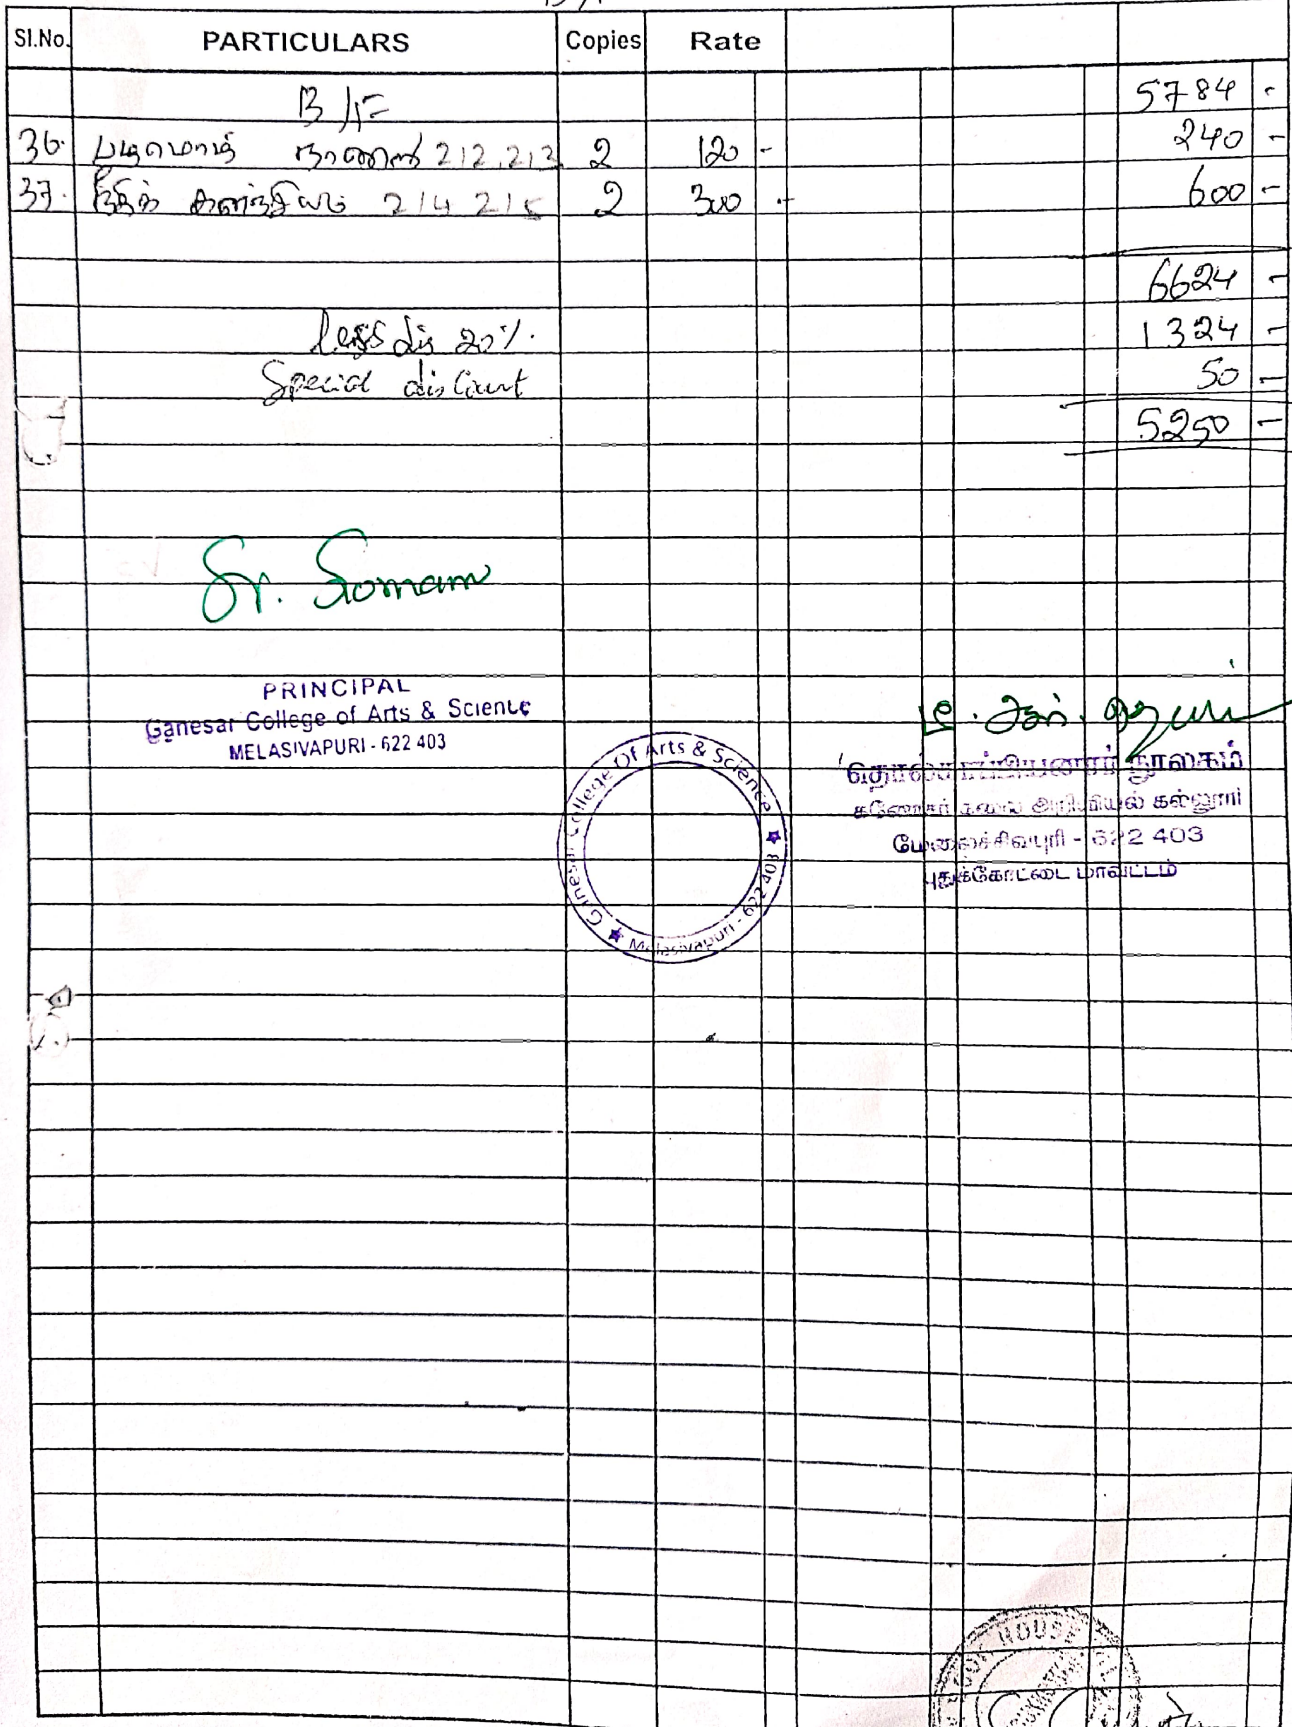 Sl.No. PARTICULARS Copies Rate
B/F 5784 -
36. நாணல் 212, 213 2 120 - 240 -
37. நீதிக் களஞ்சியம் 214 215 2 300 - 600 -
6624 -
less dis 20%. 1324 -
Special discount 50 -
5250 -
PRINCIPAL
Ganesar College of Arts & Science
MELASIVAPURI - 622 403
Ganesar College Of Arts & Science ★ Melasivapuri - 622 403 ★
தொல்காப்பியனார் நூலகம்
கணேசர் கலை அறிவியல் கல்லூரி
மேலைச்சிவபுரி - 622 403
புதுக்கோட்டை மாவட்டம்
BOOK HOUSE